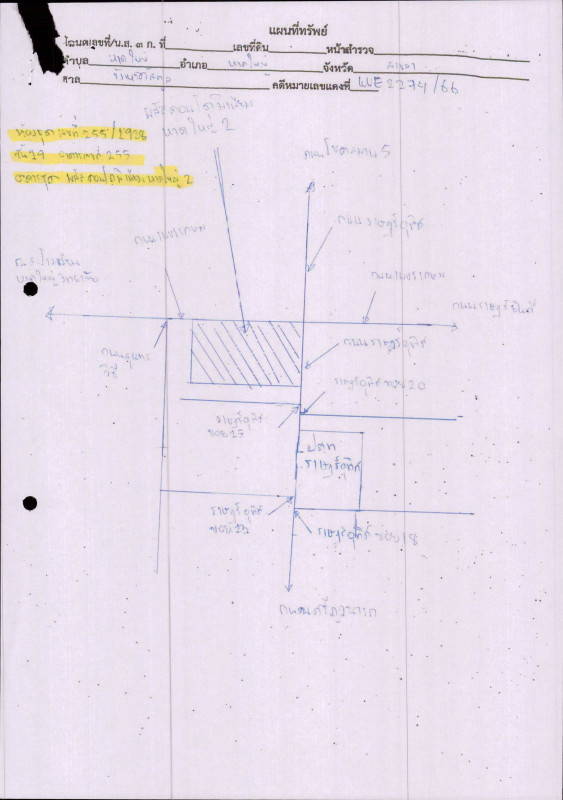 แผนที่ทรัพย์
โฉนดเลขที่/น.ส. ๓ ก. ที่ เลขที่ดิน หน้าสำรวจ
ตำบล หาดใหญ่ อำเภอ หาดใหญ่ จังหวัด สงขลา
ศาล จังหวัดสงขลา คดีหมายเลขแดงที่ ผบE2274/66
พลัสคอนโดมิเนียม
หาดใหญ่ 2
ห้องชุดเลขที่ 255/1928
ชั้น 19 อาคารเลขที่ 255
อาคารชุด พลัสคอนโดมิเนียมหาดใหญ่ 2
ถนนโชคสมาน 5
ถนนราษฎร์อุทิศ
ถนนเพชรเกษม
ถนนเพชรเกษม
หาดใหญ่วิทยาลัย
ถนนราษฎร์ยินดี
ถนนราษฎร์อุทิศ
ราษฎร์อุทิศ ซอย 20
ราษฎร์อุทิศ
ปตท
ราษฎร์อุทิศ
ราษฎร์อุทิศ
ราษฎร์อุทิศ ซอย 18
ถนนศรีภูวนารถ